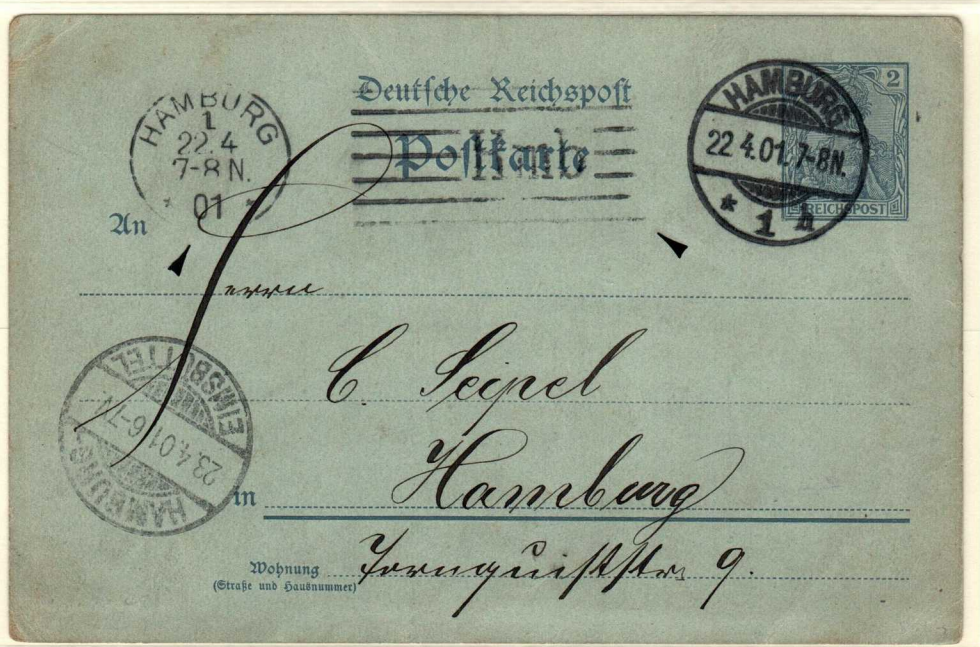 Deutsche Reichspost
Postkarte
HAMBURG
1
22.4
7-8 N.
* 01 *
Hamb
HAMBURG
22.4.01. 7-8N.
* 1 h
2
REICHSPOST
An
Herrn
C. Seipel
HAMBURG-EIMSBÜTTEL
23.4.01 6-7V.
in Hamburg
Wohnung Tornquiststr. 9.
(Straße und Hausnummer)